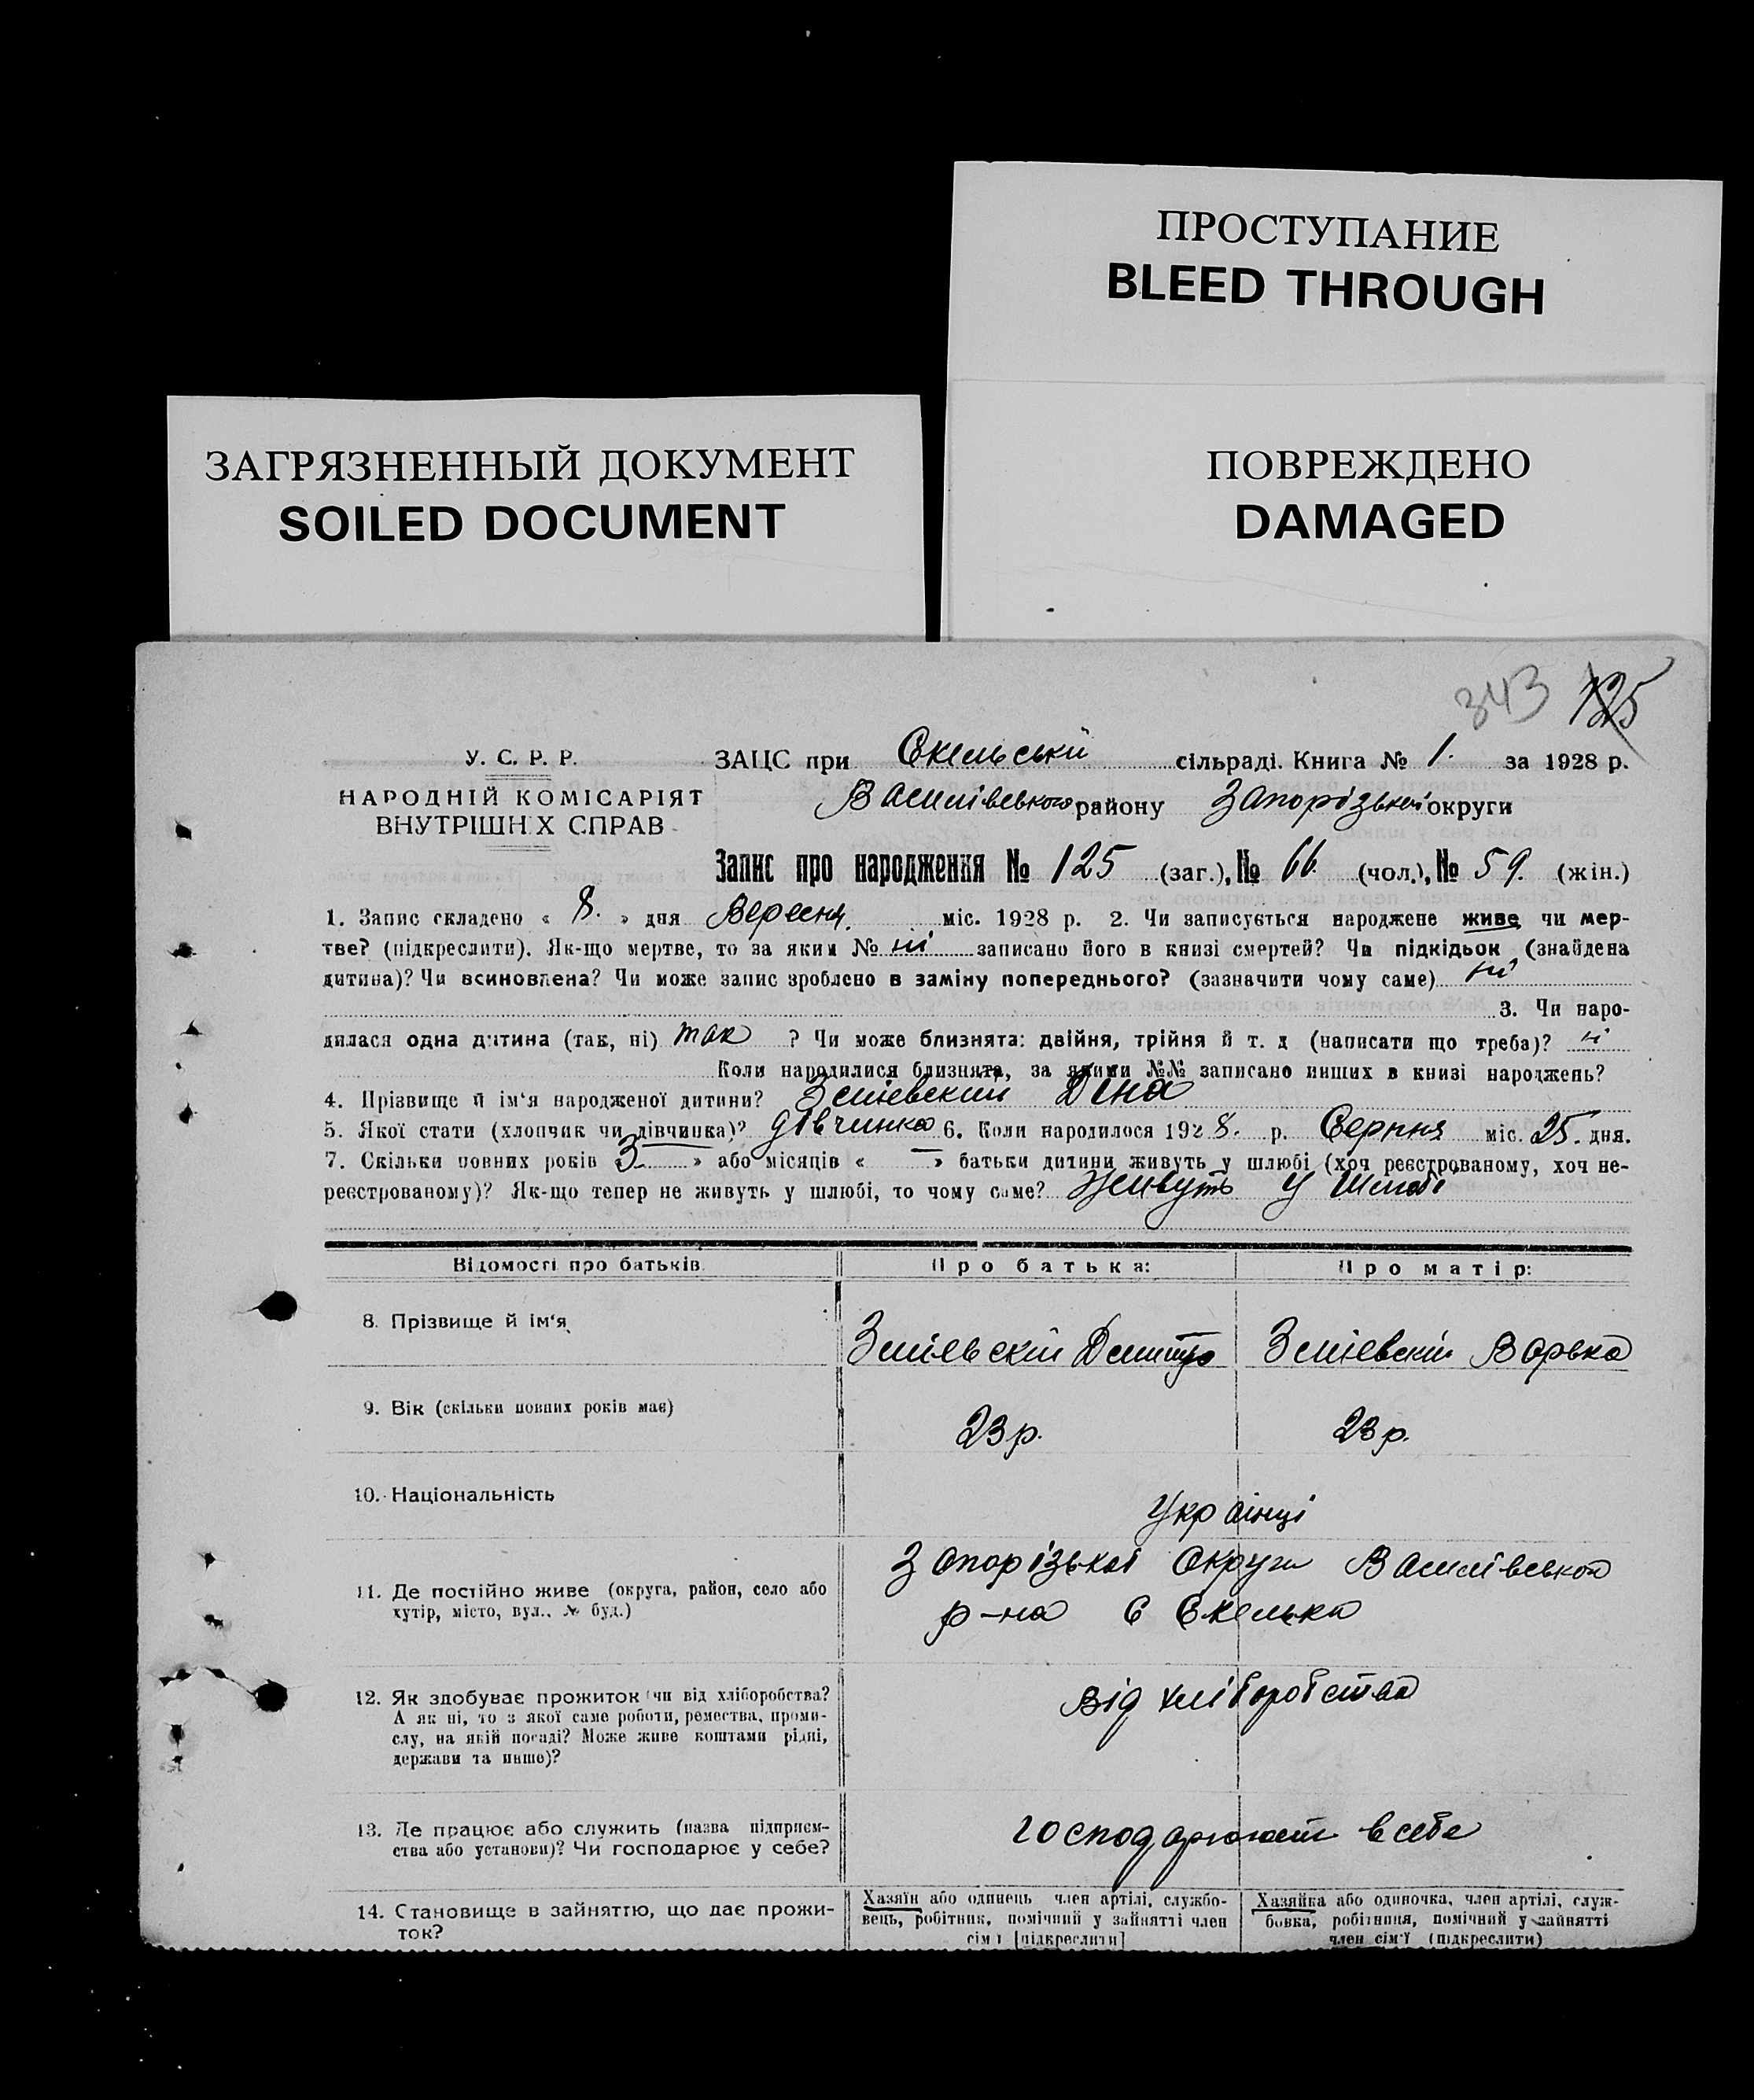 ПРОСТУПАНИЕ
BLEED THROUGH
ЗАГРЯЗНЕННЫЙ ДОКУМЕНТ
SOILED DOCUMENT
ПОВРЕЖДЕНО
DAMAGED
343 125
У. С. Р. Р.
НАРОДНІЙ КОМІСАРІЯТ
ВНУТРІШНІХ СПРАВ
ЗАЦС при Скельській сільраді. Книга № 1. за 1928 р.
Василівського району Запорізької округи
Запис про народження № 125 (заг.), № 66. (чол.), № 59. (жін.)
1. Запис складено « 8. » дня Вересня. міс. 1928 р. 2. Чи записується народжене живе чи мер-
тве? (підкреслити). Як-що мертве, то за яким № ні записано його в книзі смертей? Чи підкідьок (знайдена
дитина)? Чи всиновлена? Чи може запис зроблено в заміну попереднього? (зазначити чому саме) ні
3. Чи наро-
дилася одна дитина (так, ні) так ? Чи може близнята: двійня, трійня й т. д (написати що треба)? ні
Коли народилися близнята, за якими №№ записано инших в книзі народжень?
4. Прізвище й ім'я народженої дитини? Зміевский Діна
5. Якої стати (хлопчик чи дівчинка)? дівчинка 6. Коли народилося 1928. р. Серпня міс. 25. дня.
7. Скільки повних років « 3 » або місяців « — » батьки дитини живуть у шлюбі (хоч реєстрованому, хоч не-
реєстрованому)? Як-що тепер не живуть у шлюбі, то чому саме? Живуть у шлюбі
Відомості про батьків
Про батька:
Про матір:
8. Прізвище й ім'я
Зміевскій Дмитро
Зміевскій Варька
9. Вік (скільки повних років має)
23 р.
23 р.
10. Національність
Українці
11. Де постійно живе (округа, район, село або
хутір, місто, вул., № буд.)
Запорізької Округи Василівського
р-на С Скелька
12. Як здобуває прожиток (чи від хліборобства?
А як ні, то з якої саме роботи, ремества, проми-
слу, на якій посаді? Може живе коштами рідні,
держави та инше)?
від хліборобства
13. Де працює або служить (назва підприєм-
ства або установи)? Чи господарює у себе?
господарюють в себе
14. Становище в зайняттю, що дає прожи-
ток?
Хазяїн або одинець член артілі, службо-
вець, робітник, помічний у зайнятті член
сім'ї [підкреслити]
Хазяйка або одиночка, член артілі, служ-
бовка, робітниця, помічний у зайнятті
член сім'ї (підкреслити)